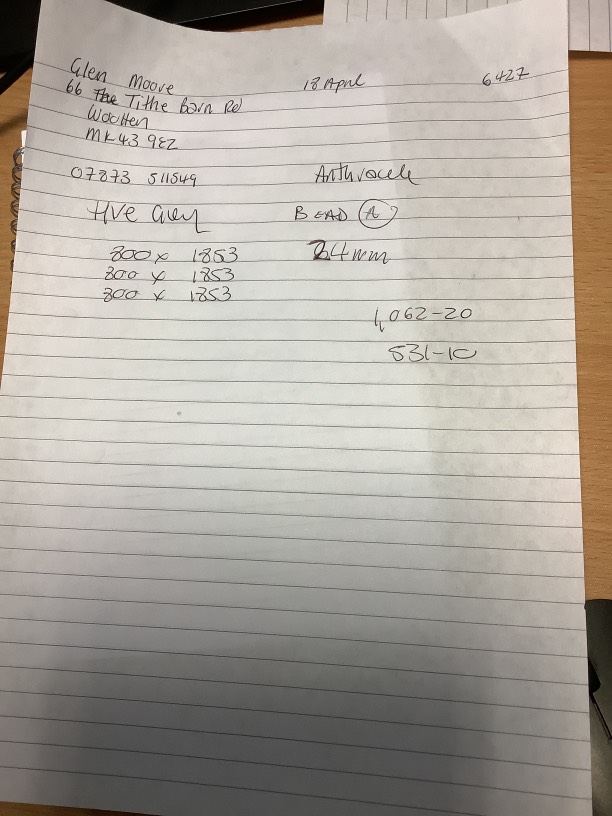 Glen Moore 18 April 6427
66 The Tithe Barn Rd
Wootten
MK43 9EZ
07873 511549 Anthracite
Grey BEAD (A)
800 x 1853 24mm
800 x 1853
800 x 1853
1,062-20
531-10